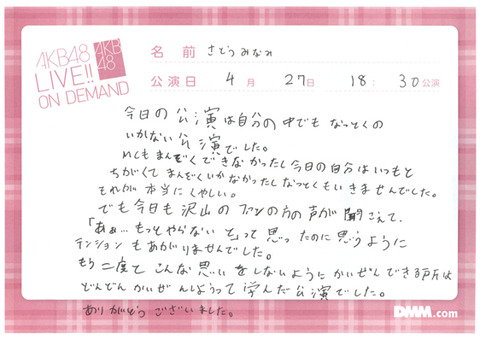 AKB48
LIVE!!
ON DEMAND
AKB
48
名前 さとうみなみ
公演日 4月 27日 18:30公演
今日の公演は自分の中でもなっとくの
いかない公演でした。
まんぞくできなかったし今日の自分はいつもと
ちがくてまんぞくいかなかったしなっとくもいきませんでした。
それが本当にくやしい。
でも今日も沢山のファンの方の声が聞こえて、
「あぁ…もっとやらないと」って思ったのに思うように
テンションもあがりませんでした。
もう二度とこんな思いをしないようにかいぜんできる所は
どんどんかいぜんしようって学んだ公演でした。
ありがとうございました。
DMM.com